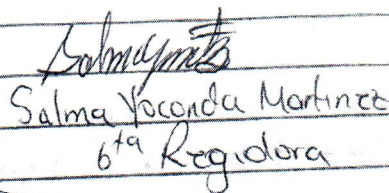 Salma Yoconda Martinez
6ta Regidora